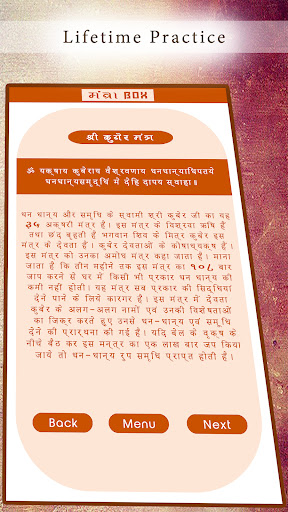 Lifetime Practice
मंत्रा BOX
श्री कुबेर मंत्र
ॐ यक्षाय कुबेराय वैश्रवणाय धनधान्याधिपतये
धनधान्यसमृद्धिं मे देहि दापय स्वाहा॥
धन धान्य और समृधि के स्वामी श्री कुबेर जी का यह
३५ अक्षरी मंत्र है। इस मंत्र के विश्रवा ऋषि हैं
तथा छंद बृहती है भगवान शिव के मित्र कुबेर इस
मंत्र के देवता हैं। कुबेर देवताओं के कोषाध्यक्ष है ।
इस मंत्र को उनका अमोघ मंत्र कहा जाता है। माना
जाता है कि तीन महीने तक इस मंत्र का १०८ बार
जाप करने से घर में किसी भी प्रकार धन धान्य की
कमी नहीं होती। यह मंत्र सब प्रकार की सिद्धियां
देने पाने के लिये कारगर है। इस मंत्र में देवता
कुबेर के अलग-अलग नामों एवं उनकी विशेषताओं
का जिक्र करते हुए उनसे धन-धान्य एवं समृद्धि
देने की प्रार्थना की गई है। यदि बेल के वृक्ष के
नीचे बैठ कर इस मन्त्र का एक लाख बार जप किया
जाये तो धन-धान्य रुप समृधि प्राप्त होती है।
Back
Menu
Next